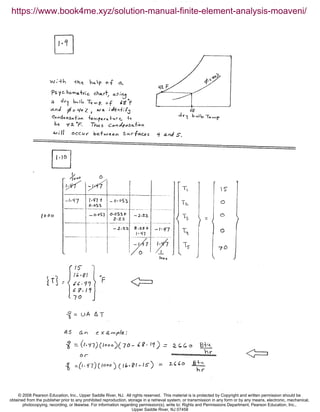 https://www.book4me.xyz/solution-manual-finite-element-analysis-moaveni/
1.9
With the help of a
Psychometric chart, using
a dry bulb Temp of 68°F
and φ=40%, we identify
Condensation temperature to
be 42°F. Thus Condensation
will occur between surfaces 4 and 5.
42F
φ=40%
68
dry bulb Temp
1.10
1000 0
1.47 -1.47
-1.47 1.47+0.053 -0.053
1000
-0.053 0.053+2.22 -2.22
-2.22 2.22+1.47 -1.47
-1.47 1.47
0 1
1000
T1 T2 T3 T4 T5 = 15 0 0 0 70
{T} = 15 16.81 66.97 68.19 70 °F
q = UA ΔT
as an example:
q = (1.47)(1000)(70-68.19) = 2660 Btu/hr
or
q = (1.47)(1000)(16.81-15) = 2660 Btu/hr
© 2008 Pearson Education, Inc., Upper Saddle River, NJ. All rights reserved. This material is protected by Copyright and written permission should be
obtained from the publisher prior to any prohibited reproduction, storage in a retrieval system, or transmission in any form or by any means, electronic, mechanical,
photocopying, recording, or likewise. For information regarding permission(s), write to: Rights and Permissions Department, Pearson Education, Inc.,
Upper Saddle River, NJ 07458